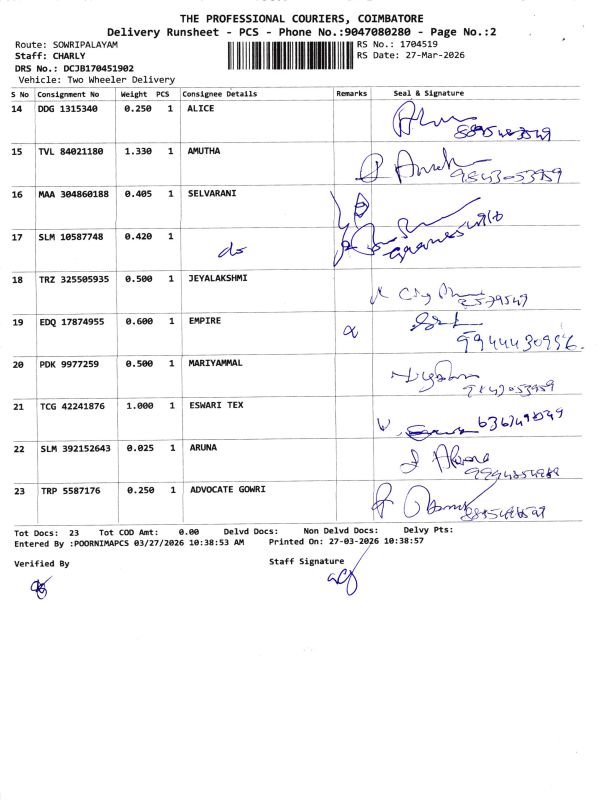 THE PROFESSIONAL COURIERS, COIMBATORE
Delivery Runsheet - PCS - Phone No.:9047080280 - Page No.:2
Route: SOWRIPALAYAM RS No.: 1704519
Staff: CHARLY RS Date: 27-Mar-2026
DRS No.: DCJB170451902
Vehicle: Two Wheeler Delivery
S No Consignment No Weight PCS Consignee Details Remarks Seal & Signature
14 DDG 1315340 0.250 1 ALICE
15 TVL 84021180 1.330 1 AMUTHA
9843053959
16 MAA 304860188 0.405 1 SELVARANI
17 SLM 10587748 0.420 1
do
18 TRZ 325505935 0.500 1 JEYALAKSHMI
19 EDQ 17874955 0.600 1 EMPIRE
9944430956.
20 PDK 9977259 0.500 1 MARIYAMMAL
21 TCG 42241876 1.000 1 ESWARI TEX
22 SLM 392152643 0.025 1 ARUNA
23 TRP 5587176 0.250 1 ADVOCATE GOWRI
Tot Docs: 23 Tot COD Amt: 0.00 Delvd Docs: Non Delvd Docs: Delvy Pts:
Entered By :POORNIMAPCS 03/27/2026 10:38:53 AM Printed On: 27-03-2026 10:38:57
Verified By Staff Signature